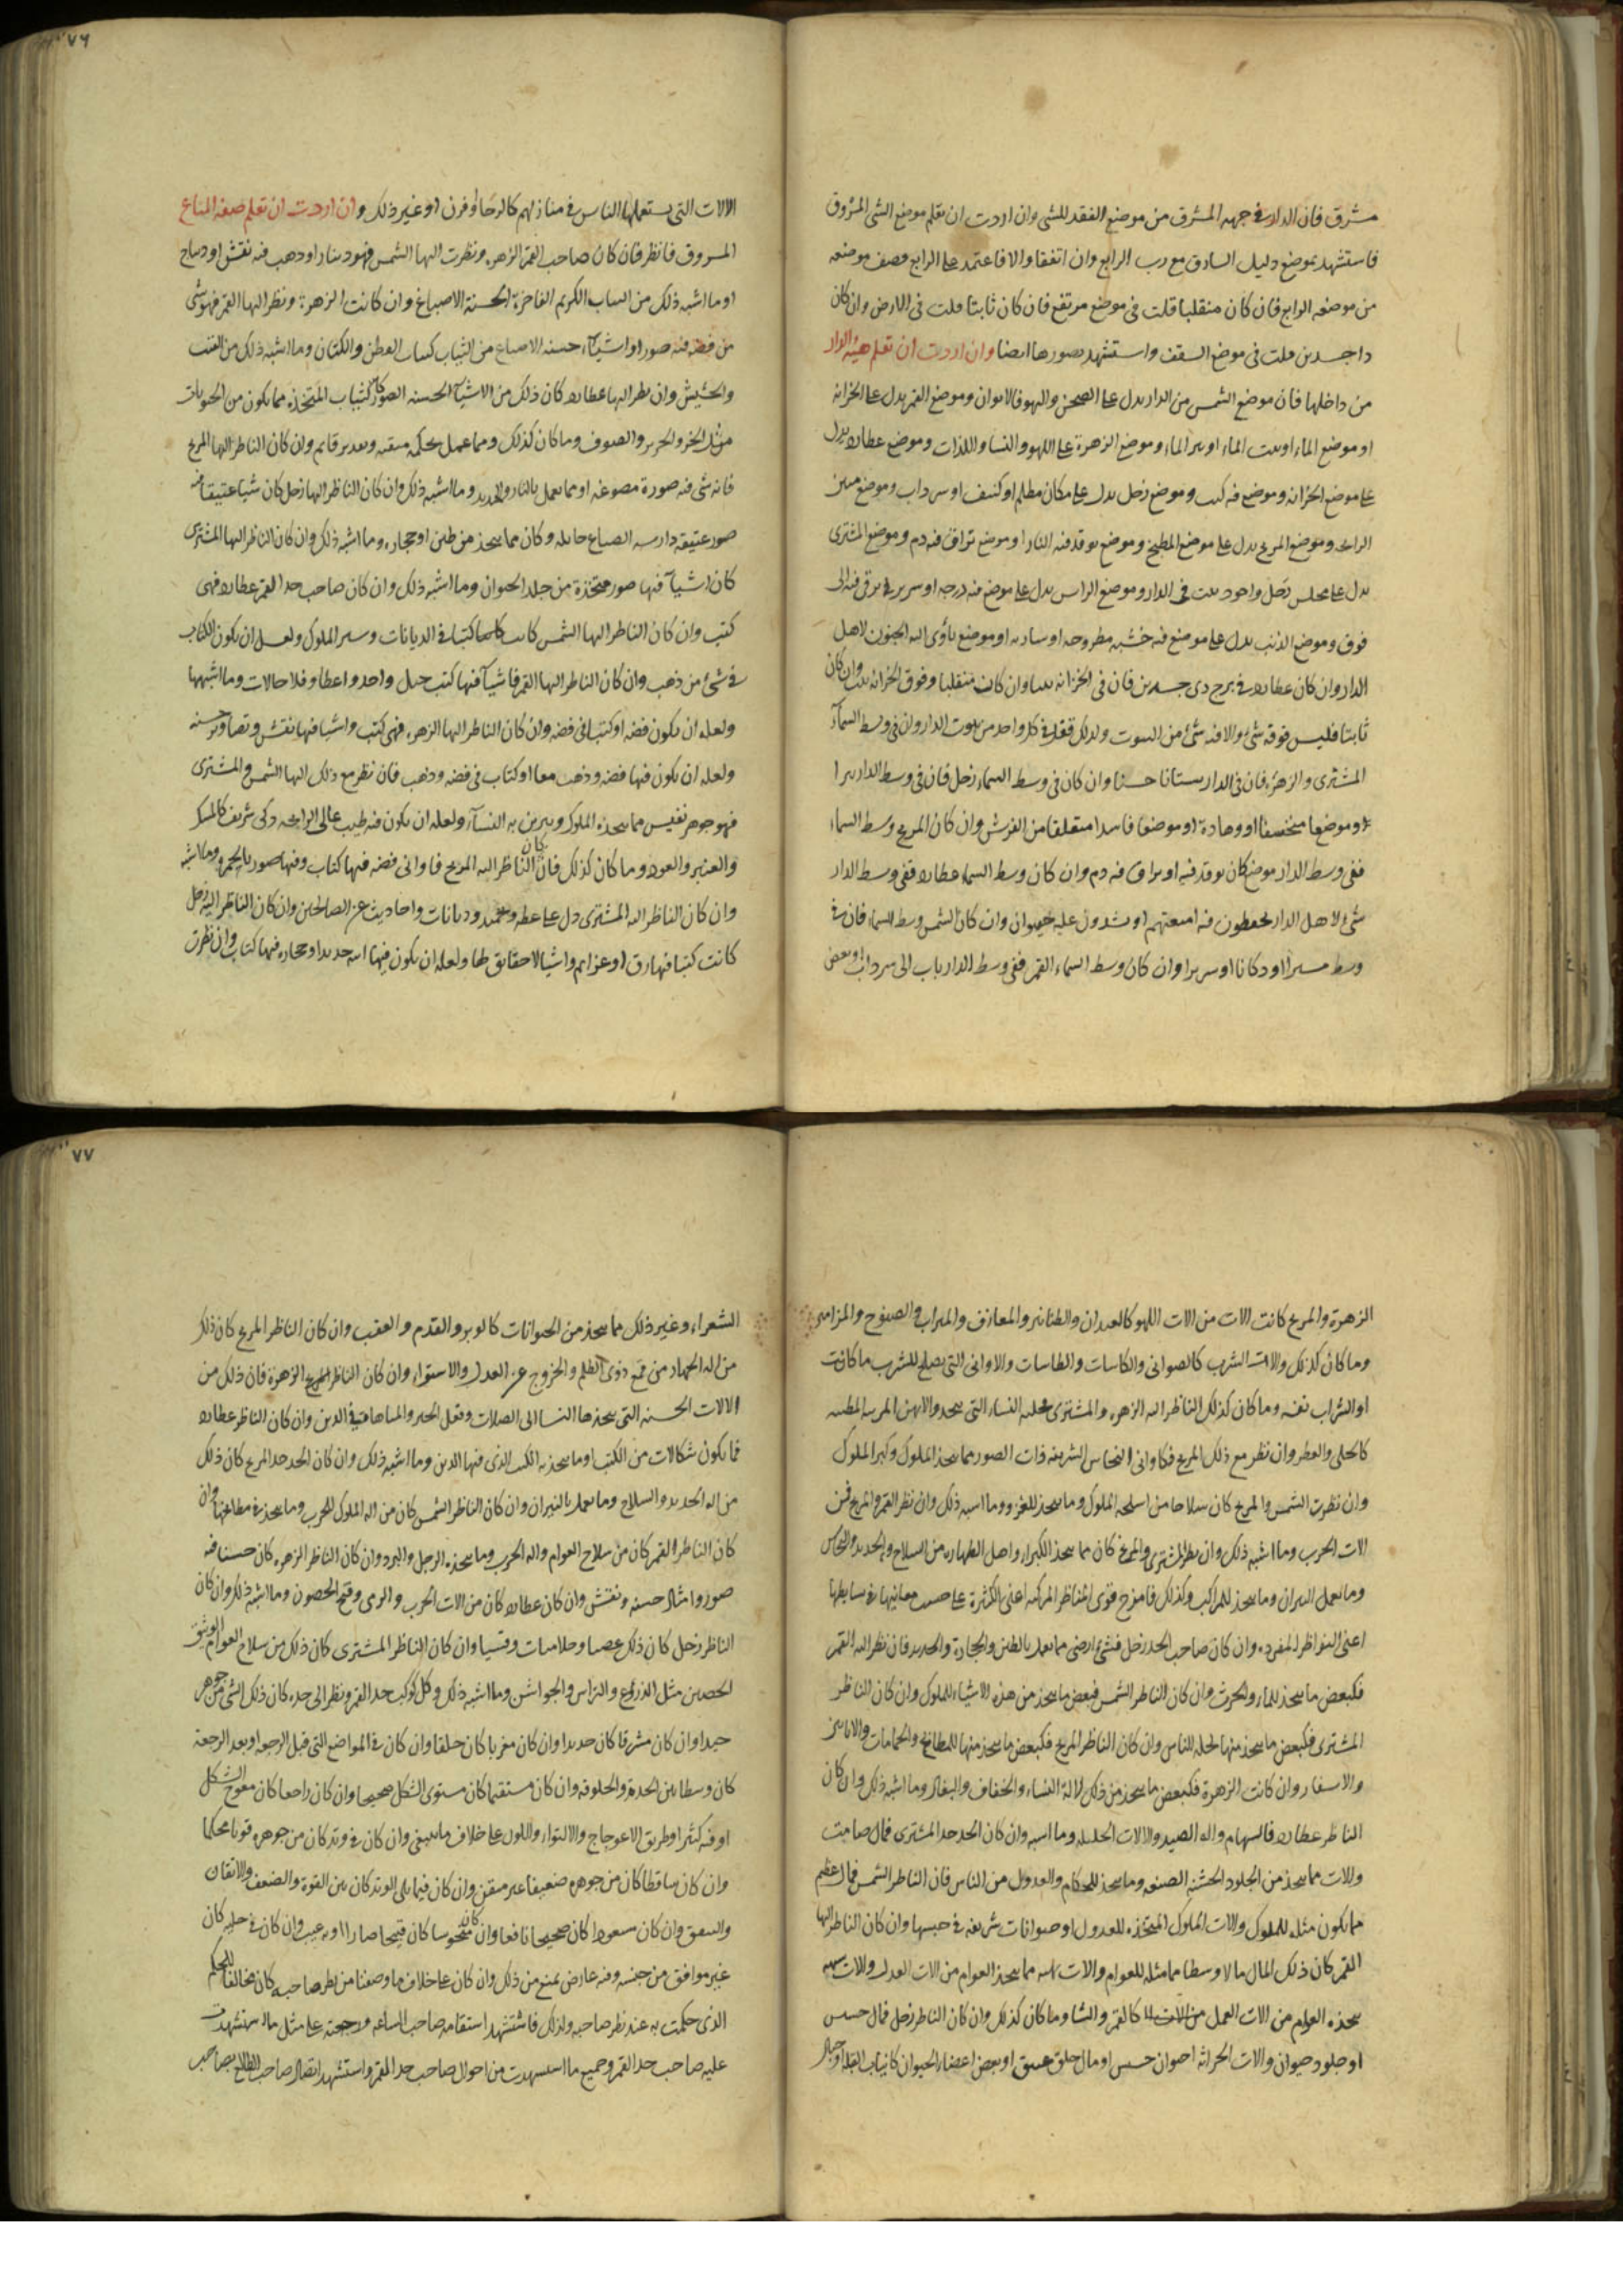 مشرق فان الدار في جهه المشرق من موضع الفقد للشى وان اردت ان تعلم موضع الشى المسروق
فاستشهد بموضع دليل السارق مع رب الرابع وان اتفقا والا فاعتمد على الرابع فصف موضعه
من موضعه الرابع فان كان منقلبا قلت فى موضع مرتفع فان كان ثابتا قلت فى الارض وان كان
ذا جسدين قلت فى موضع السقف واستشهد بصورها ايضا وان اردت ان تعلم هيئه الدار
من داخلها فان موضع الشمس من الدار يدل على الصحن والبهو فالايوان وموضع القمر يدل على الخزانه
او موضع الماء او بيت الماء او بير الماء وموضع الزهرة على اللهو والنسا واللذات وموضع عطارد يدل
على موضع الخزانه وموضع فيه كتب وموضع زحل يدل على مكان مظلم او كنيف او سرداب وموضع منتن
الرايحه وموضع المريخ يدل على موضع المطبخ وموضع يوقد فيه النار او موضع يراق فيه دم وموضع المشترى
يدل على مجلس رجل واجود بيت فى الدار وموضع الراس يدل على موضع فيه درجه او سرير يرقى فيه الى
فوق وموضع الذنب يدل على موضع فيه خشبه مطروحه او ساريه او موضع يأوى اليه الجنون لاهل
الدار وان كان عطارد فى برج ذى جسدين فان فى الخزانه بيتا وان كان منقلبا وفوق الخزانه بيت وان كان
ثابتا فليس فوقه شئ والا فيه شئ من البيوت ولذلك فقل فى كل واحد من بيوت الدار وان فى وسط السمآء
المشترى والزهره فان فى الدار بستانا حسنا وان كان فى وسط السماء زحل فان فى وسط الدار بيرا
او موضعا منخسفا او وهادة او موضعا فاسدا متعلقا من الفرش وان كان المريخ وسط السماء
ففى وسط الدار موضع كان يوقد فيه او يراق فيه دم وان كان وسط السماء عطارد ففى وسط الدار
شئ لاهل الدار يحفظون فيه امتعتهم او يشدون عليه حيوان وان كان الشمس وسط السماء فان فى
وسط مسيرا او دكانا او سريرا وان كان وسط السماء القمر ففى وسط الدار باب الى سرداب او بعض
الالات التى يستعملها الناس فى منازلهم كالرحا او فرن او غير ذلك وان اردت ان تعلم صفه المتاع
المسروق فانظر فان كان صاحب القمر الزهره ونظرت اليها الشمس فهو دينار او ذهب فيه نقش او ديباج
او ما اشبه ذلك من الثياب الكريم الفاخرة الحسنة الاصباغ وان كانت الزهرة ونظر اليها القمر فهو شئ
من فضه فيه صور او اشيآء حسنه الاصباغ من الثياب كثياب القطن والكتان وما اشبه ذلك من القنب
والحشيش وان نظر اليها عطارد كان ذلك من الاشيآ الحسنه الصور كالثياب المتخذه مما يكون من الحيوانات
مثل الخز والحرير والصوف وما كان كذلك ومما عمل بحكمه متقنه وتقدير قايم وان كان الناظر اليها المريخ
فانه شى فيه صورة مصوغه او مما يعمل بالنار والحديد وما اشبه ذلك وان كان الناظر اليها زحل كان شيا عتيقا فيه
صور عتيقه دارسه الصباغ حايله وكان مما يتخذ من طين او حجاره وما اشبه ذلك وان كان الناظر اليها المشترى
كان اشيآ فيها صور متخذة من جلد الحيوان وما اشبه ذلك وان كان صاحب حد القمر عطارد فهى
كتب وان كان الناظر اليها الشمس كانت كلها كتبا فى الديانات وسير الملوك ولعل ان يكون الكتاب
فى شئ من ذهب وان كان الناظر اليها القمر فاشيآ فيها كتب حيل واخذ واعطا وفلاحات وما اشبهها
ولعله ان يكون فضه او كتبا فى فضه وان كان الناظر اليها الزهره فهى كتب واشيا فيها نقش وتصاوير حسنه
ولعله ان يكون فيها فضه وذهب معا او كتاب فى فضه وذهب فان نظر مع ذلك اليها الشمس والمشترى
فهو جوهر نفيس مما يتخذه الملوك ويتزين به النسآء ولعله ان يكون فيه طيب عالى الرايحه ذكى شريف كالمسك
والعنبر والعود وما كان كذلك فان كان الناظر اليه المريخ فاوانى فضه فيها كتاب وفيها صور بالحمره وما اشبه
وان كان الناظر اليه المشترى دل على عظه وتحميد وديانات واحاديث عن الصالحين وان كان الناظر اليه زحل
كانت كتبا فيها رقى او عزايم واشيا لا حقايق لها ولعله ان يكون فيها انيه حديد او حجاره فيها كتاب وان نظرت
الزهرة والمريخ كانت الات من الات اللهو كالعيدان والطنابير والمعازف والمیزاب والصنوج والمزامير
وما كان كذلك والات الشرب كالصوانى والكاسات والطاسات والاوانى التى يصلح للشرب ما كانت
او الشراب نفسه وما كان كذلك الناظر اليه الزهره والمشترى فحليه النساء التى يتخذ
كالحلى والعطر وان نظر مع ذلك المريخ فكاوانى النحاس الشريفه ذات الصور مما يتخذ الملوك وكبرا الملوك
وان نظرت الشمس والمريخ كان سلاحا من اسلحه الملوك وما يتخذ للغزو وما اشبه ذلك وان نظر القمر والمريخ فمن
الات الحرب وما اشبه ذلك وان نظر المشترى والمريخ كان مما يتخذ الكبراء واهل الطهاره من السلاح والحديد والنحاس
وما يعمل النيران وما يتخذ للمراكب وكذلك فامزج قوى المناظر المركبه اعنى الكثيرة على حسب معانيها فى بسايطها
اعنى النواظر المفرده وان كان صاحب الحد زحل فشئ ارضى مما يعمل بالطين والحجارة والحديد فان نظر اليه القمر
فكبعض ما يتخذ للماء والحرث وان كان الناظر الشمس فبعض ما يتخذ من هذه الاشياء للملوك وان كان الناظر
المشترى فكبعض ما يتخذ منها لجله الناس وان كان الناظر المريخ فكبعض ما يتخذ منها للمطابخ والحمامات والاتانين
والاسفار وان كانت الزهرة فكبعض ما يتخذ من ذلك لالة النساء والخفاف والبغال وما اشبه ذلك وان كان
الناظر عطارد فالسهام واله الصيد والالات الجليله وما اشبه وان كان الحد حد المشترى فمال صامت
والات مما يتخذ من الجلود الخشنه الصنعه وما يتخذ للحكام والعدول من الناس فان الناظر الشمس فمال عظيم
مما يكون مثله للملوك والات الملوك المتخذه للعدول او حيوانات شريفه فى جنسها وان كان الناظر اليها
القمر كان ذلك المال مالا وسطا مما مثله للعوام والات مما يتخذ العوام من الات العدل والات
يتخذه العوام من الات العمل من كالقمر والشا وما كان كذلك وان كان الناظر زحل فمال خسيس
او جلود حيوان والات الحراثه او حيوان خسيس او مال خلق عتيق او بعض اعضاء الحيوان كانياب الفيله او حبال
الشعراء وغير ذلك مما يتخذ من الحيوانات كالوبر والقدم والعقب وان كان الناظر المريخ كان ذلك
من اله الجهاد من قمع ذوى الظلم والخروج عن العدل والاستواء وان كان الناظر الزهرة فان ذلك من
الالات الحسنه التى يتخذها النسا الى الصلات وفعل الخير والمباهات فى الدين وان كان الناظر عطارد
فما يكون شكالات من الكتب او ما يتخذ به الكتب الذى فيها الدين وما اشبه ذلك وان كان الحد حد المريخ كان ذلك
من اله الحديد والسلاح وما يعمل بالنيران وان كان الناظر الشمس كان من اله الملوك للحرب وما يتخذ فى مطابخها وان
كان الناظر القمر كان من سلاح العوام واله الحرب وما يتخذه الرجل والبرد وان كان الناظر الزهره كان حسنا فيه
صور وامثال حسنه ونقش وان كان عطارد كان من الات الحرب والرمى وفتح الحصون وما اشبه ذلك وان كان
الناظر زحل كان ذلك عصيا وقسيا وان كان الناظر المشترى كان ذلك من سلاح العوام الوثيق
الحصين مثل الدروع والتراس والجواشن وما اشبه ذلك وكل كوكب حد القمر ونظر الى حده كان ذلك الشى من جوهر
جيدا وان كان مشرقا كان جديدا وان كان مغربا كان خلقا وان كان فى المواضع التى قبل الرجعه او بعد الرجعة
كان وسطا بين الجدة والخلوقه وان كان مستقيما كان مستوى الشكل صحيحا وان كان راجعا كان معوج الشكل
او فيه كثير او طريق الاعوجاج والالتواء واللون على خلاف ما ينبغى وان كان فى وتد كان من جوهره قويا محكما
وان كان ساقطا كان من جوهره ضعيفا غير متقن وان كان فيما يلى الوتد كان بين القوة والضعف والاتقان
وان كان سعودا كان صحيحا نافعا وان كان منحوسا كان قبيحا ضارا او به عيب وان كان فى حليه كان
غير موافق من جنسه وفيه عارض يمنع من ذلك وان كان على خلاف ما وصفنا من نظر صاحبه كان مخالفا للحكم
الذى حكمت به عند نظر صاحبه ولذلك فاستشهد استقامه صاحب الساعه ورجعته على مثل ما استشهدت
عليه صاحب حد القمر وجميع ما استشهدت من احوال صاحب حد القمر واستشهد اتصال صاحب الطالع بصاحب
٧٦
٧٧